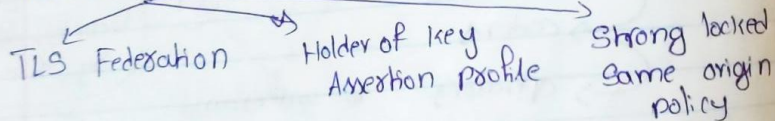 TLS Federation
Holder of key
Assertion profile
Strong locked
same origin
policy